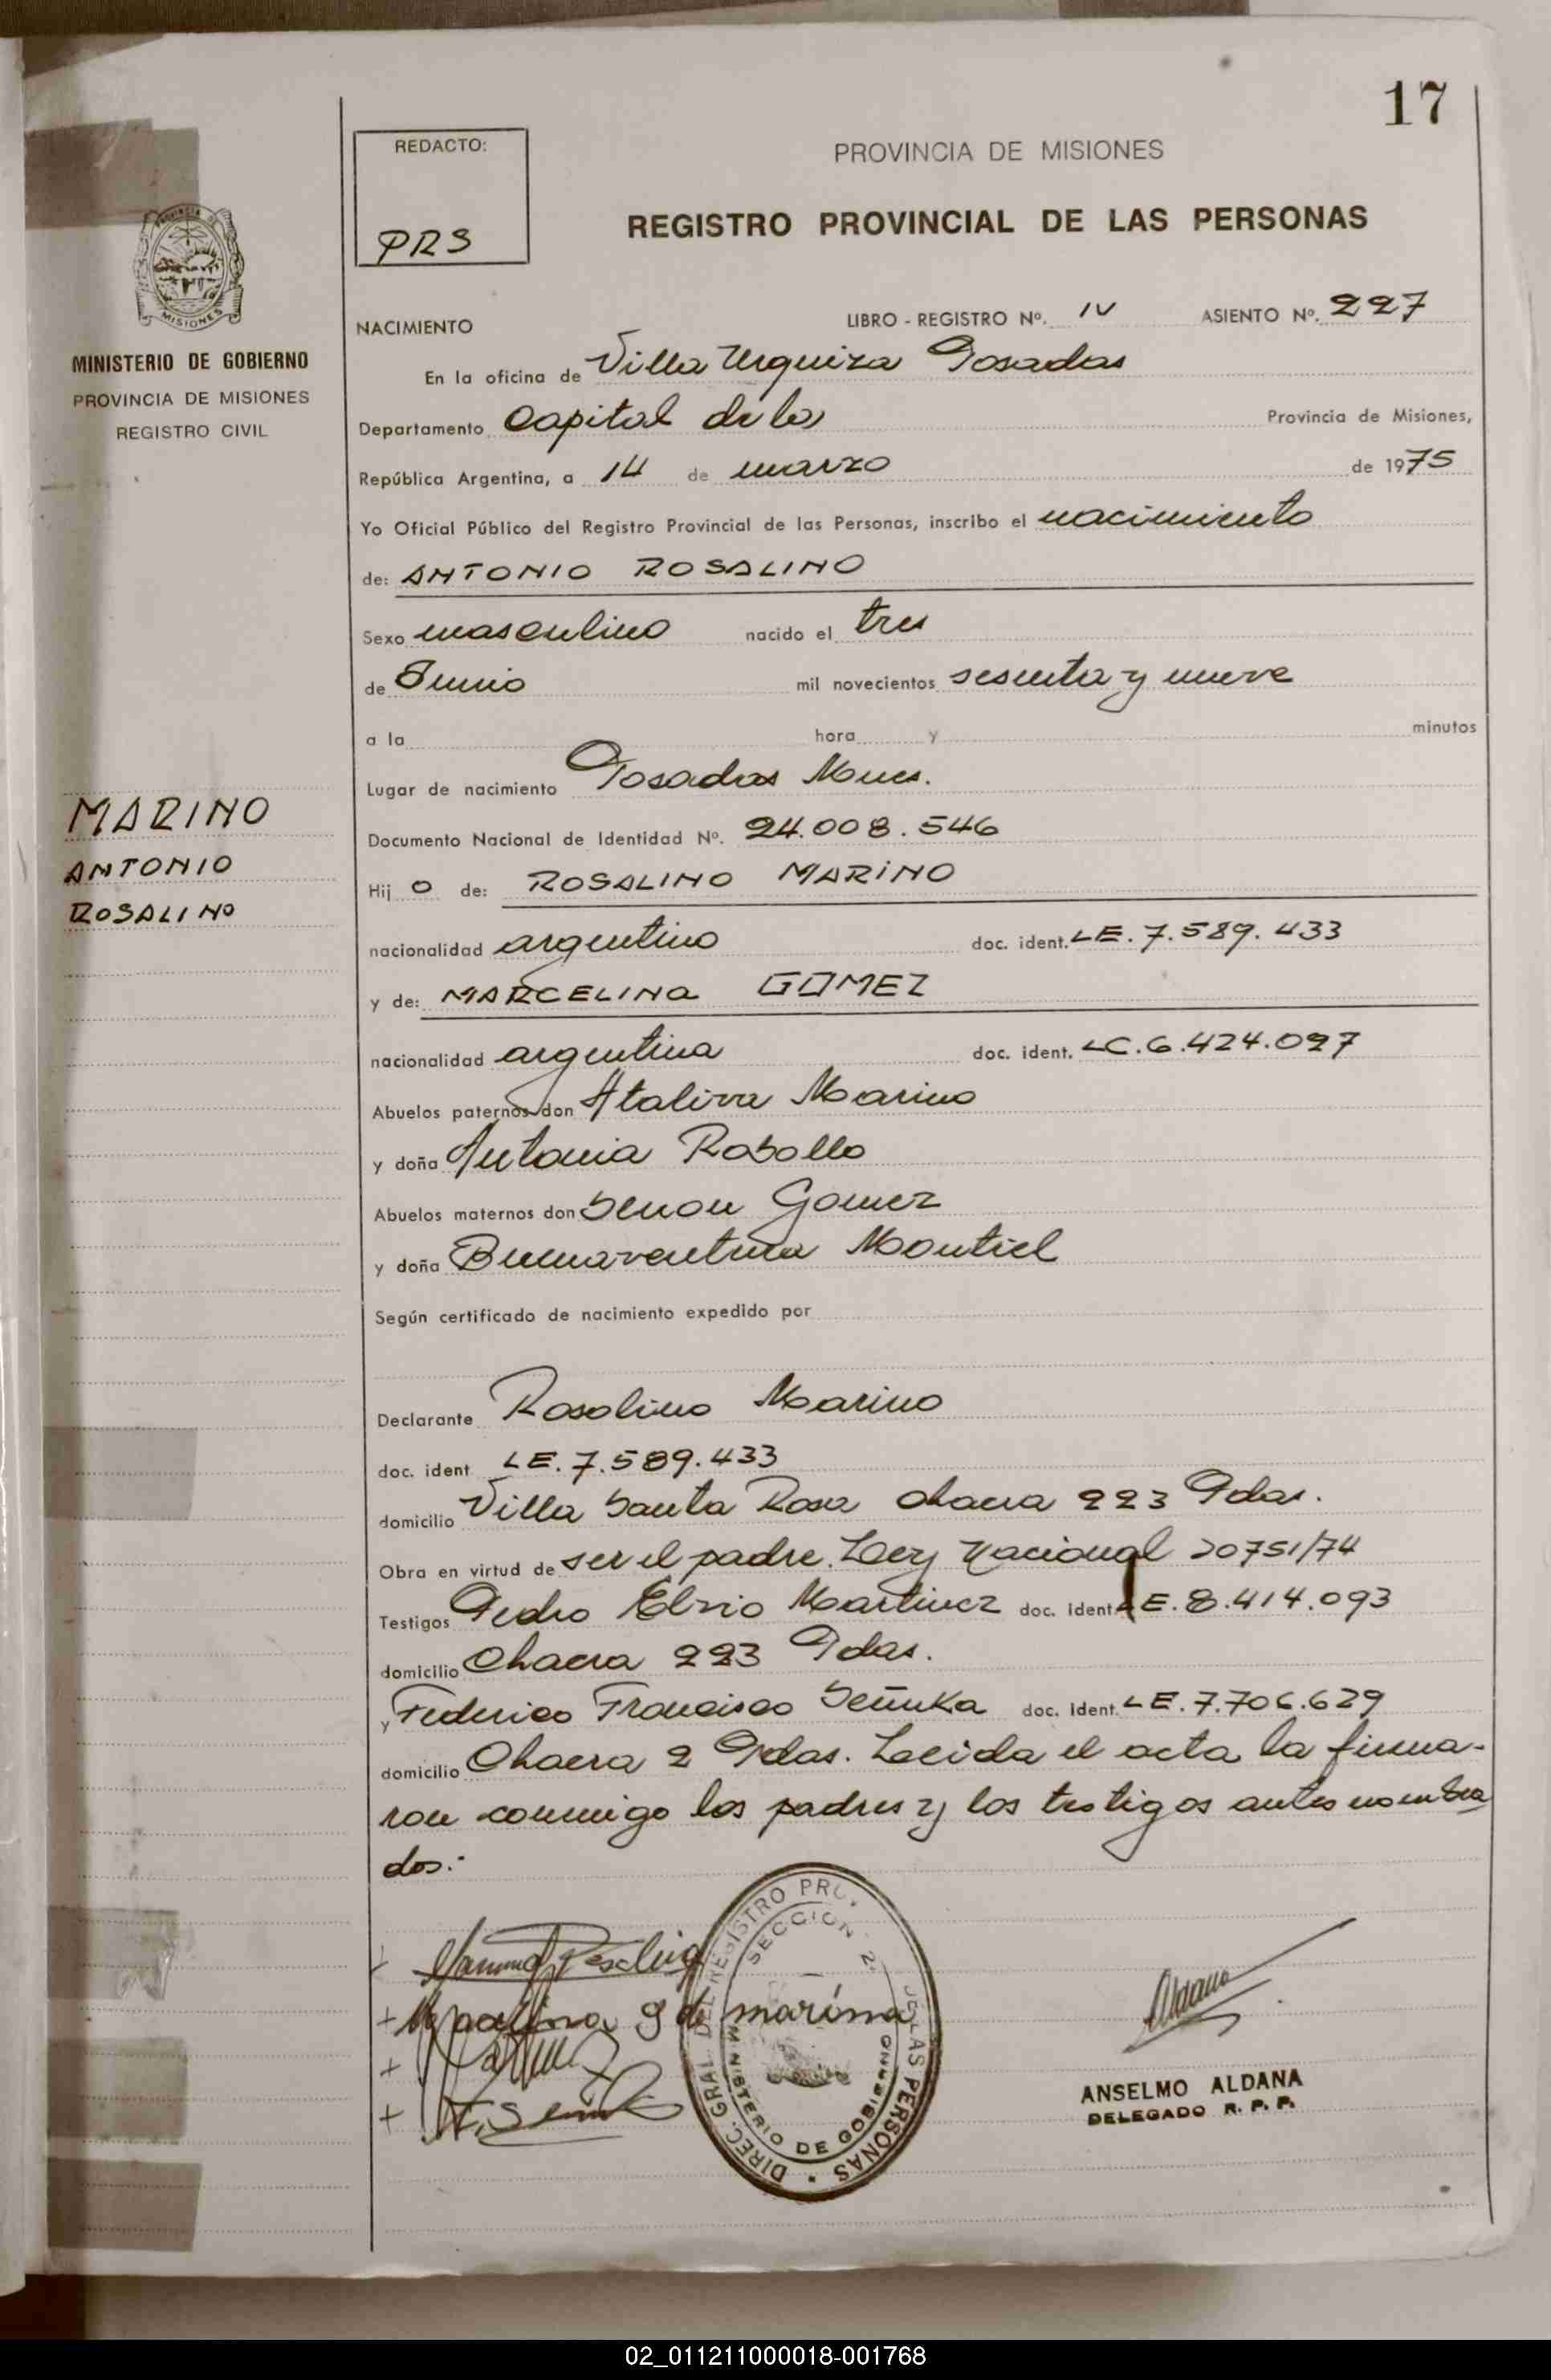 17
REDACTO:
PRS
PROVINCIA DE MISIONES
REGISTRO PROVINCIAL DE LAS PERSONAS
PROVINCIA DE
MISIONES
MINISTERIO DE GOBIERNO
PROVINCIA DE MISIONES
REGISTRO CIVIL
NACIMIENTO LIBRO - REGISTRO Nº. IV ASIENTO Nº. 227
En la oficina de Villa Urquiza Posadas
Departamento Capital de la Provincia de Misiones,
República Argentina, a 14 de marzo de 1975
Yo Oficial Público del Registro Provincial de las Personas, inscribo el nacimiento
de: ANTONIO ROSALINO
Sexo masculino nacido el tres
de Junio mil novecientos sesenta y nueve
a la hora y minutos
Lugar de nacimiento Posadas Mnes.
Documento Nacional de Identidad Nº. 24.008.546
MARINO
ANTONIO
ROSALINO
Hij o de: ROSALINO MARINO
nacionalidad argentino doc. ident. LE. 7.589.433
y de: MARCELINA GOMEZ
nacionalidad argentina doc. ident. LC. 6.424.097
Abuelos paternos don Ataliva Marino
y doña Antonia Robollo
Abuelos maternos don Senon Gomez
y doña Buenaventura Montiel
Según certificado de nacimiento expedido por
Declarante Rosolino Marino
doc. ident LE. 7.589.433
domicilio Villa Santa Rosa chacra 223 Pdas.
Obra en virtud de ser el padre. Ley Nacional 20751/74
Testigos Pedro Elvio Martinez doc. ident LE. 8.414.093
domicilio Chacra 223 Pdas.
y Federico Francisco Señuka doc. Ident. LE. 7.706.629
domicilio Chacra 2 Pdas. Leida el acta la firma-
ron conmigo los padres y los testigos antes nombra
dos.-
DIREC. GRAL. DEL REGISTRO PROV. DE LAS PERSONAS
SECCION 2
MINISTERIO DE GOBIERNO
g de marino
Aldana
ANSELMO ALDANA
DELEGADO R. P. P.
02_011211000018-001768